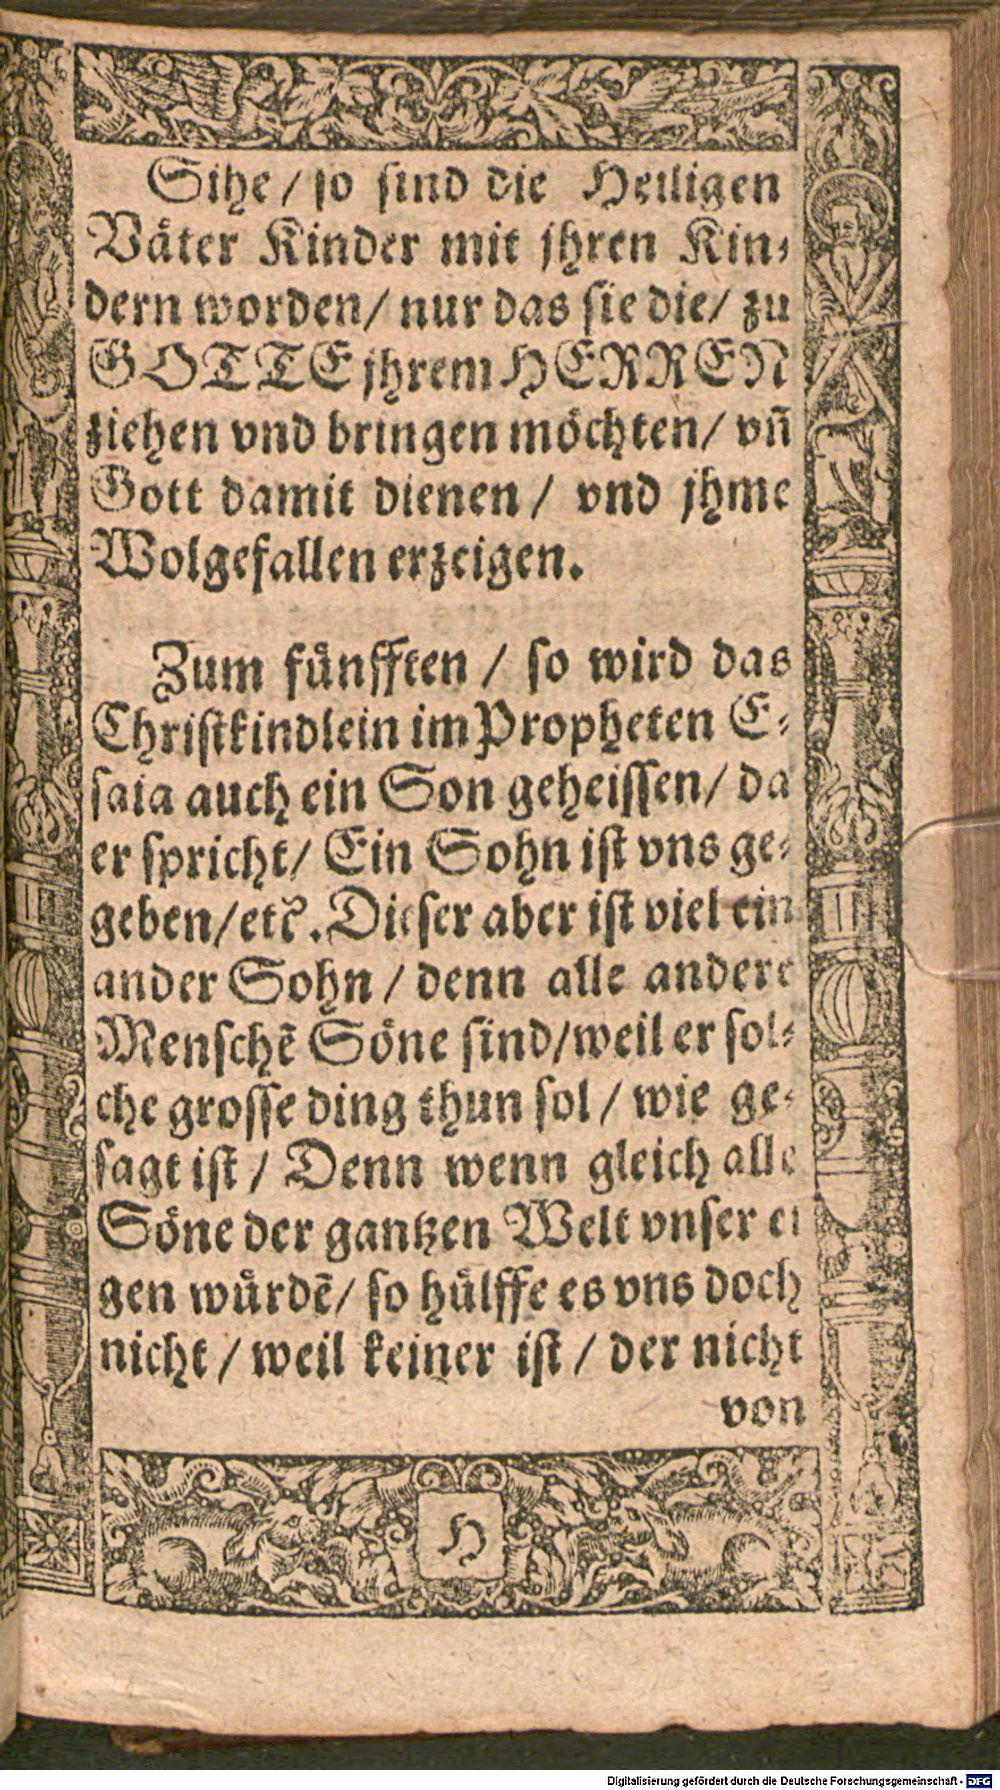 Sihe / so sind die Heiligen
Väter Kinder mit jhren Kin-
dern worden / nur das sie die / zu
GOTTE jhrem HERREN
ziehen vnd bringen möchten / vñ
Gott damit dienen / vnd jhme
Wolgefallen erzeigen.
Zum fünfften / so wird das
Christkindlein im Propheten E-
saia auch ein Son geheissen / da
er spricht / Ein Sohn ist vns ge-
geben / etc̃. Dieser aber ist viel ein
ander Sohn / denn alle andere
Menschẽ Söne sind / weil er sol-
che grosse ding thun sol / wie ge-
sagt ist / Denn wenn gleich alle
Söne der gantzen Welt vnser ei
gen würdẽ / so hülffe es vns doch
nicht / weil keiner ist / der nicht
von
H
Digitalisierung gefördert durch die Deutsche Forschungsgemeinschaft - DFG